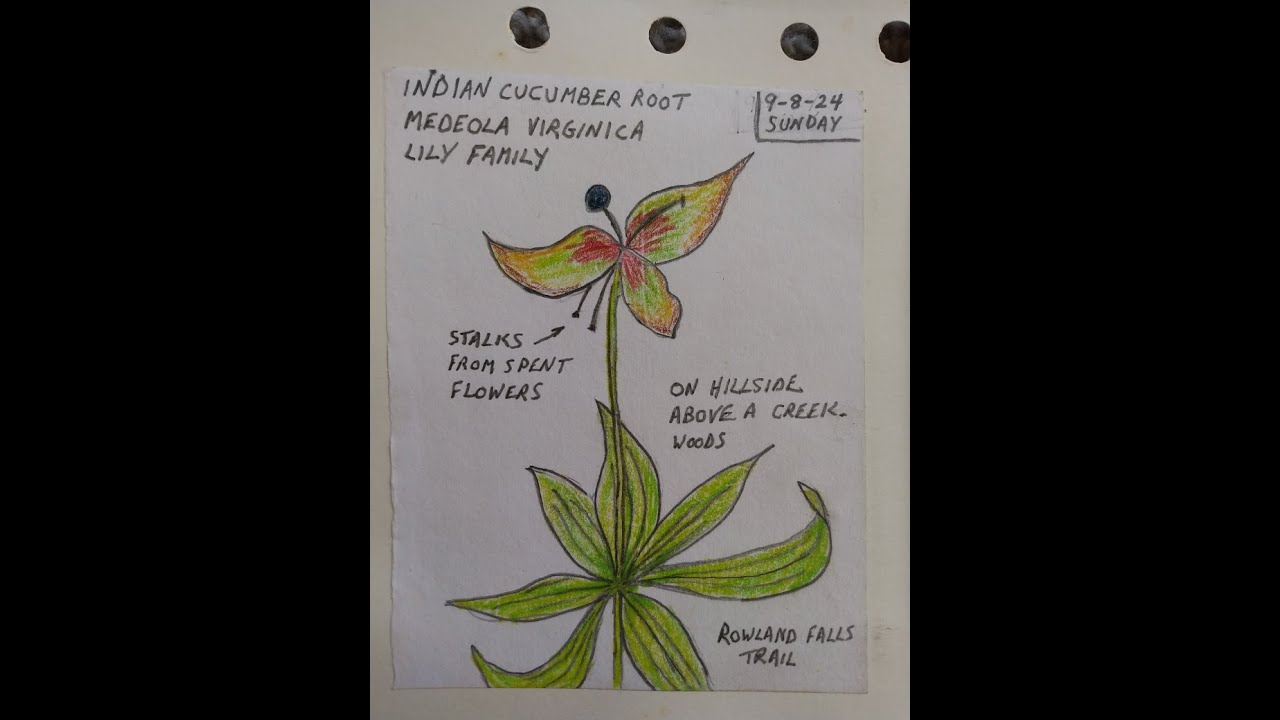 INDIAN CUCUMBER ROOT
MEDEOLA VIRGINICA
LILY FAMILY
9-8-24
SUNDAY
STALKS
FROM SPENT
FLOWERS
ON HILLSIDE
ABOVE A CREEK.
WOODS
ROWLAND FALLS
TRAIL